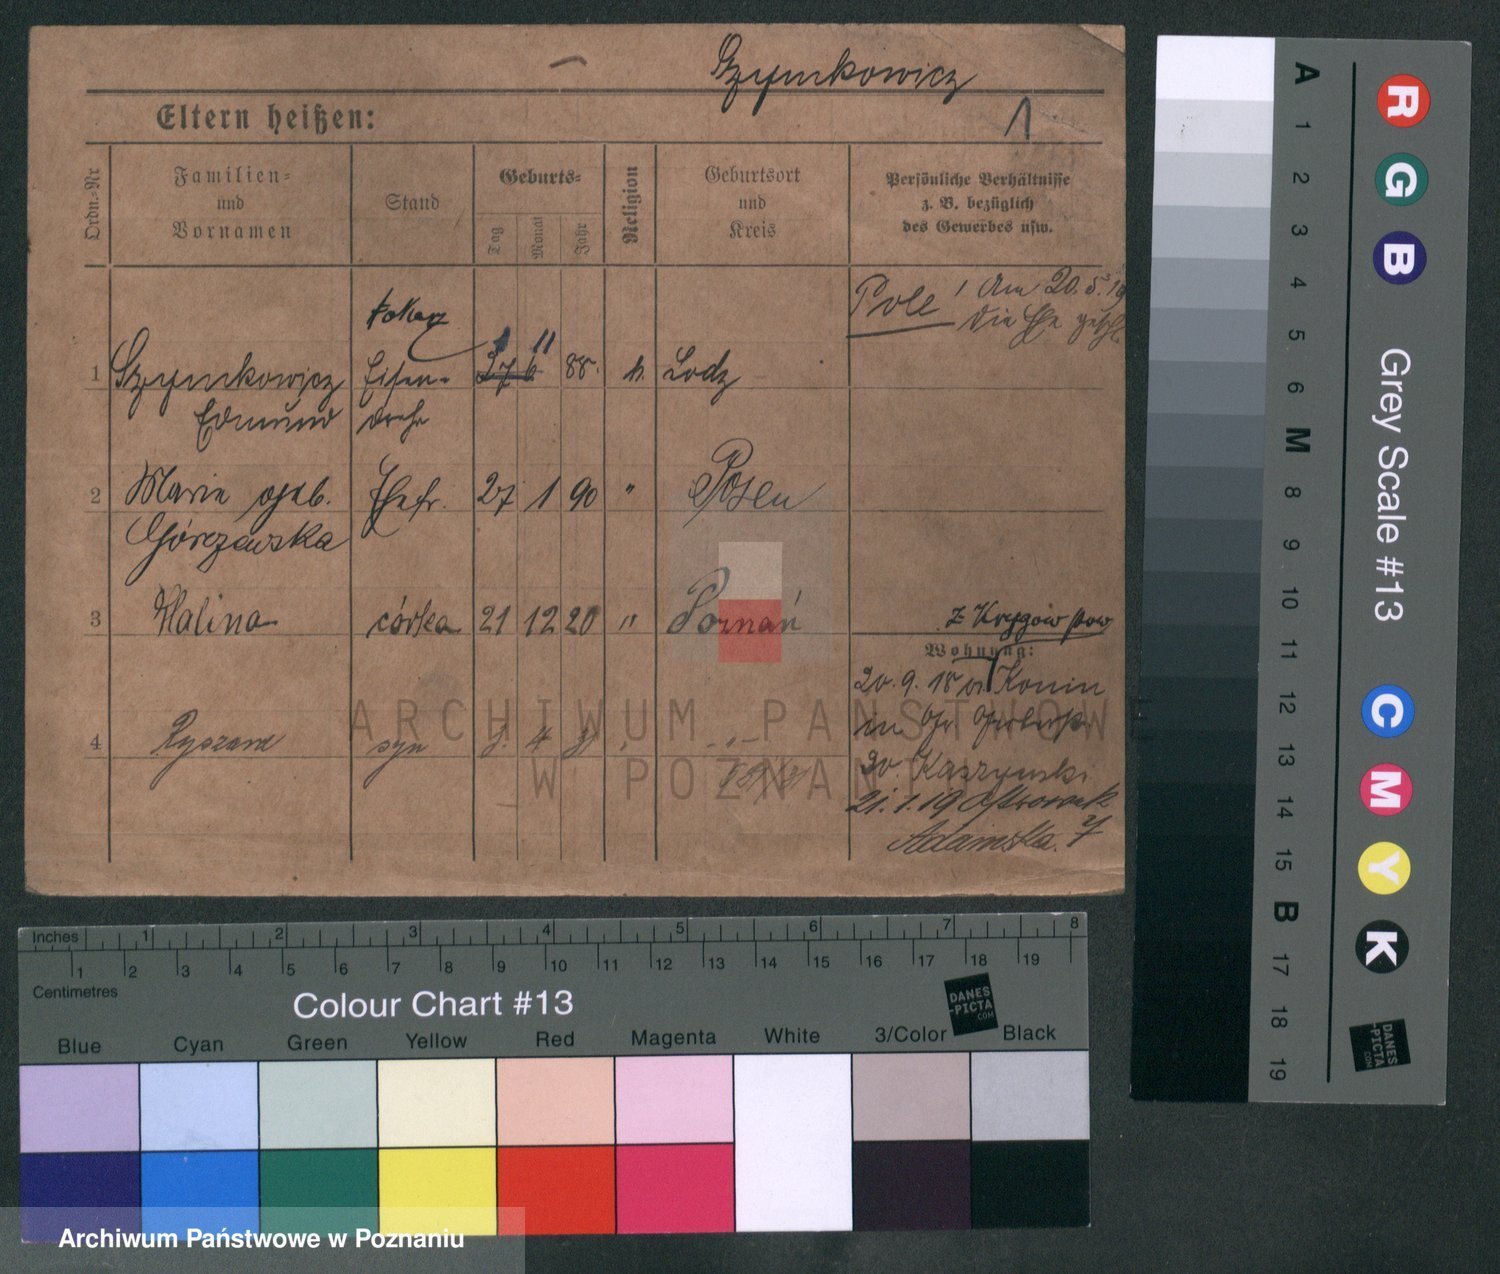 Szymkowicz
1
Eltern heißen:
Ordn.-Nr
Familien-
und
Vornamen
Stand
Geburts-
Tag
Monat
Jahr
Religion
Geburtsort
und
Kreis
Persönliche Verhältnisse
z. B. bezüglich
des Gewerbes usw.
Pole ! Am 20.5.19
die Ehe
tokarz
1 Szymkowicz Eisen- 27 6 11 88. k. Lodz
Edmund dreher
2 Marie geb. Ehefr. 27 1 90 " Posen
Górczewska
3 Halina córka 21 12 20 " Poznań
Z pow
Wohnung:
20.9.18 Konin
4 Ryszard syn 4
20. Kaszynski
21.1.19
Adamska. 7
ARCHIWUM PAŃSTWOWE
W POZNANIU
Inches 1 2 3 4 5 6 7 8
1 2 3 4 5 6 7 8 9 10 11 12 13 14 15 16 17 18 19
Centimetres
Colour Chart #13
DANES
-PICTA
.COM
Blue Cyan Green Yellow Red Magenta White 3/Color Black
Archiwum Państwowe w Poznaniu
A 1 2 3 4 5 6 M 8 9 10 11 12 13 14 15 B 17 18 19
R G B
Grey Scale #13
C M Y K
DANES
-PICTA
.COM